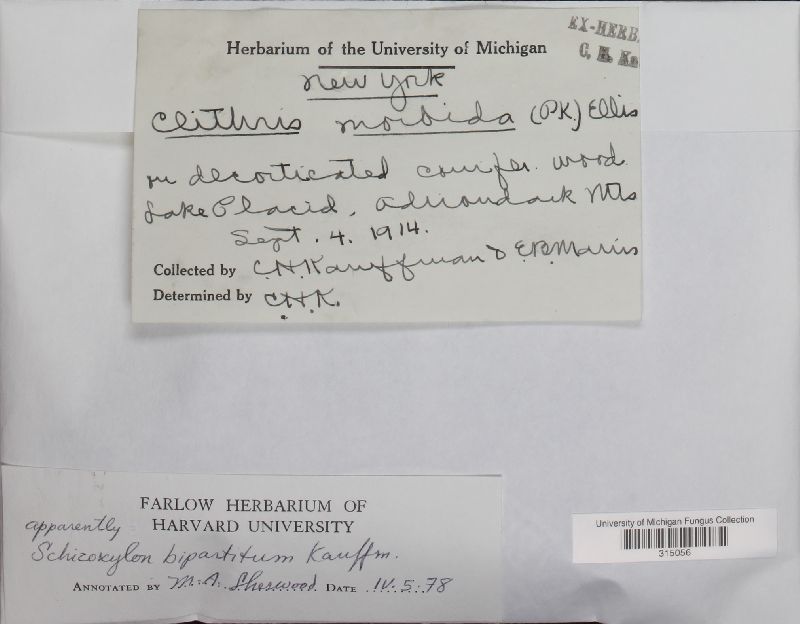 Herbarium of the University of Michigan
EX-HERB.
C. H. Ka
New York
Clithris morbida (PK.) Ellis
on decorticated conifer. wood
Lake Placid, Adirondack Mts
Sept. 4. 1914.
Collected by C.H.Kauffman & E.B.Mains
Determined by C.H.K.
FARLOW HERBARIUM OF
apparently HARVARD UNIVERSITY
Schizoxylon bipartitum Kauffm.
ANNOTATED BY M. A. Sherwood DATE IV. 5. 78
University of Michigan Fungus Collection
315056